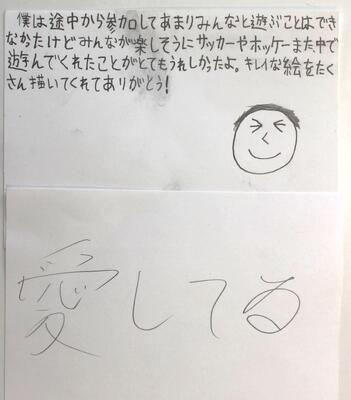 僕は途中から参加してあまりみんなと遊ぶことはでき
なかたけどみんなが楽しそうにサッカーやホッケーまた中で
遊んでくれたことがとてもうれしかったよ。キレイな絵をたく
さん描いてくれてありがとう!
愛してる